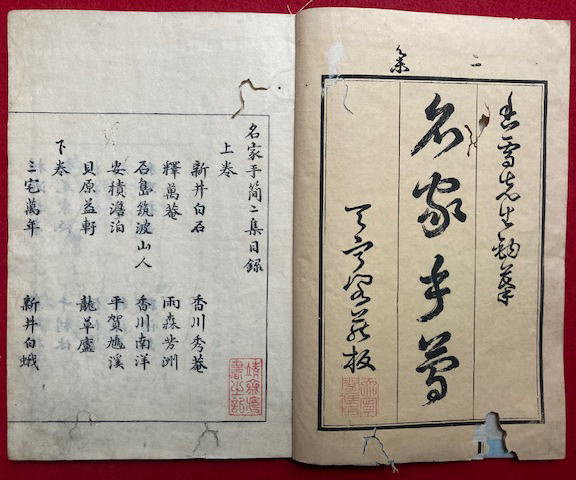 二集
香雪先生鈎摹
名家手簡
藏板
名家手簡二集目録
上卷
新井白石　香川秀菴
釋萬菴　雨森芳洲
石島筑波山人　香川南洋
安積澹泊　平賀鳩溪
貝原益軒　龍草廬
下卷
三宅萬年　新井白蛾